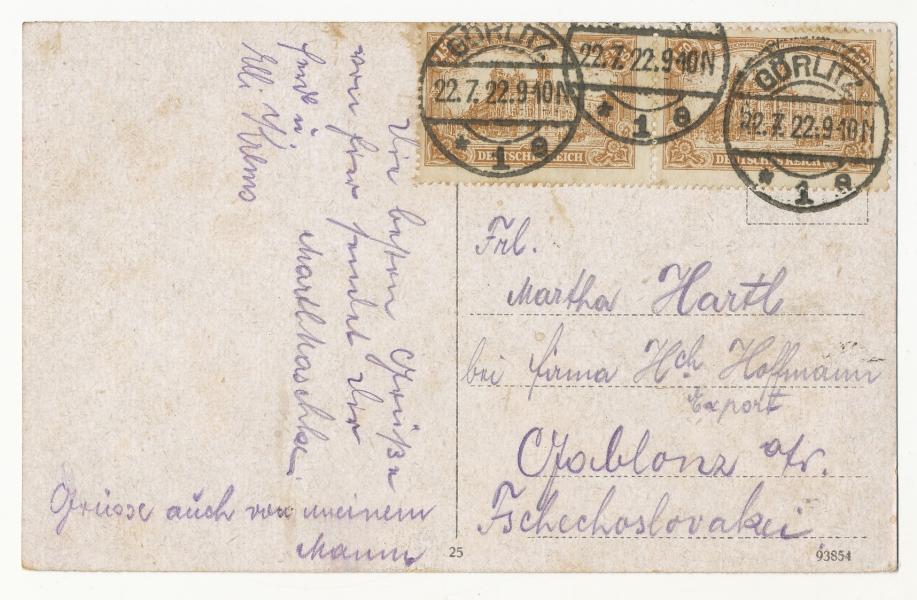 GÖRLITZ
22.7.22.9-10N
* 1 e
22.7.22.9-10N
* 1 e
GÖRLITZ
22.7.22.9-10N
* 1 e
DEUTSCHES REICH
DEUTSCHES REICH
Die besten Grüße
von hier sendet Dir
und
Elli
Grüsse auch von meinem
Mann
Frl.
Martha Hartl
bei Firma Hch Hoffmann
Export
Gablonz a/N.
Tschechoslovakei
25
93854